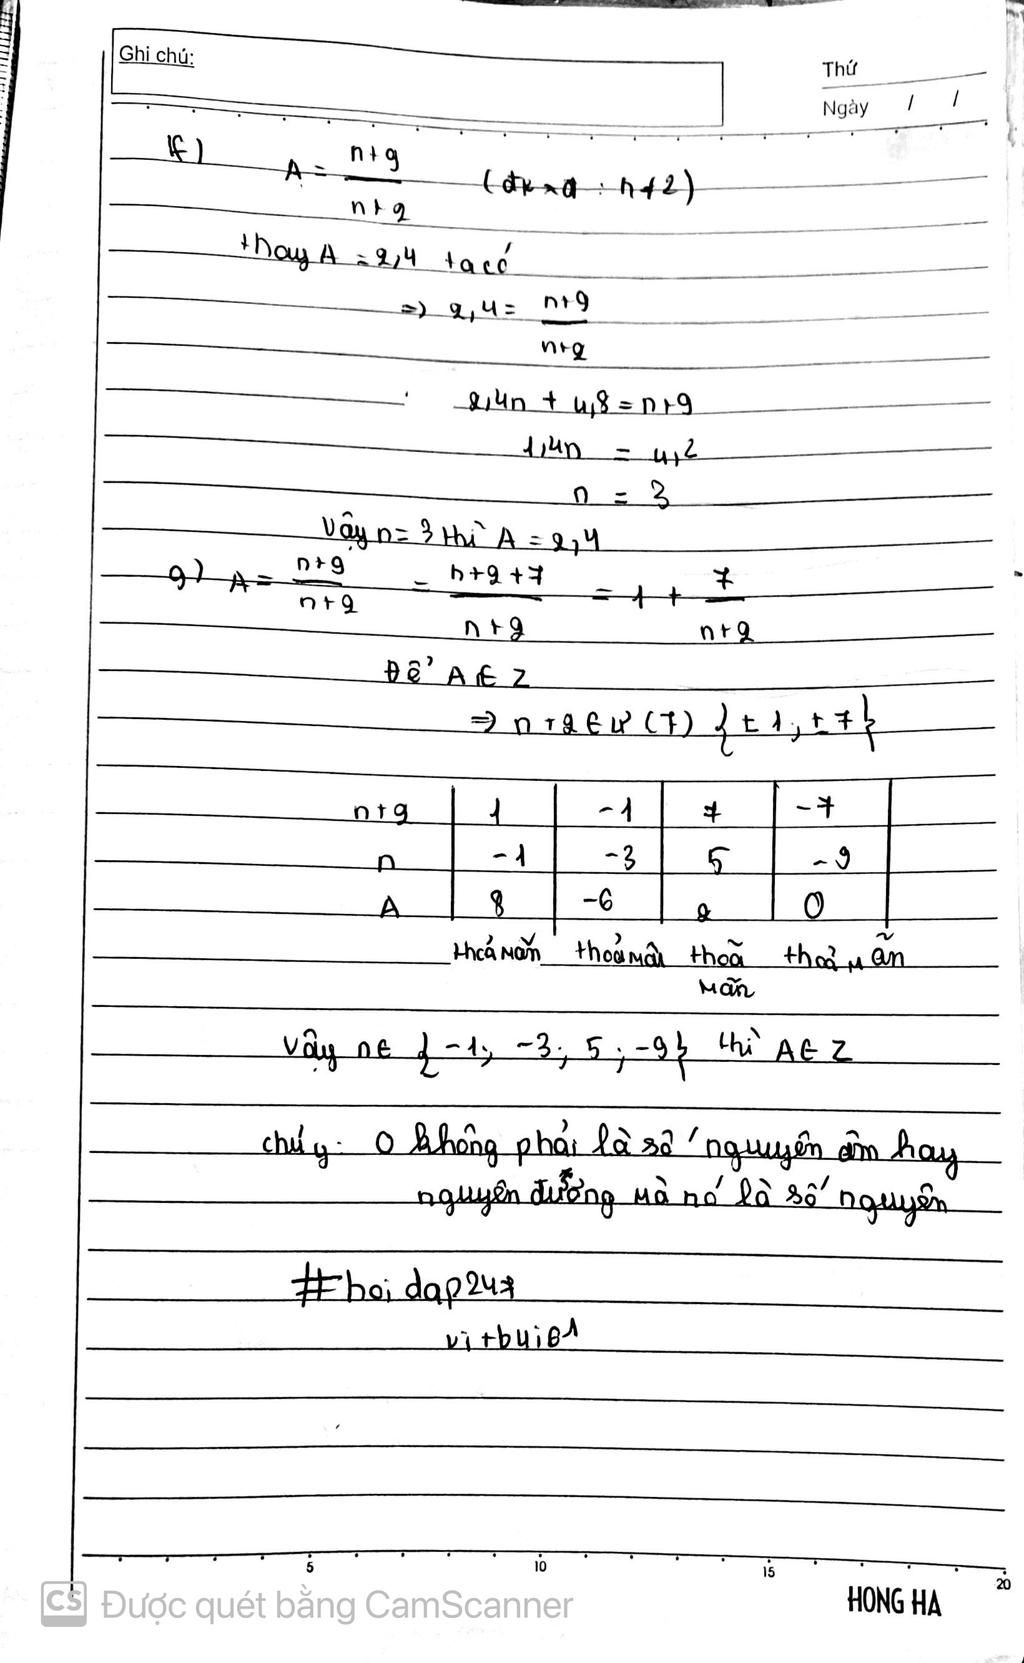 Ghi chú:
Thứ
Ngày / /
f) A = n+9 / n+2 (đk xđ : n≠2)
thay A = 2,4 ta có
=> 2,4 = n+9 / n+2
2,4n + 4,8 = n+9
1,4n = 4,2
n = 3
Vậy n = 3 thì A = 2,4
g) A = n+9 / n+2 = n+2+7 / n+2 = 1 + 7 / n+2
Để A ∈ Z
=> n+2 ∈ Ư (7) { ± 1; ± 7}
n+2 1 -1 7 -7
n -1 -3 5 -9
A 8 -6 2 0
thoả mãn thoả mãn thoã mãn thoả mãn
Vậy n ∈ { -1; -3; 5; -9} thì A ∈ Z
chú ý: 0 không phải là số nguyên âm hay
nguyên dương mà nó là số nguyên
#hoidap247
vitbui81
5 10 15 20
HONG HA
CS Được quét bằng CamScanner